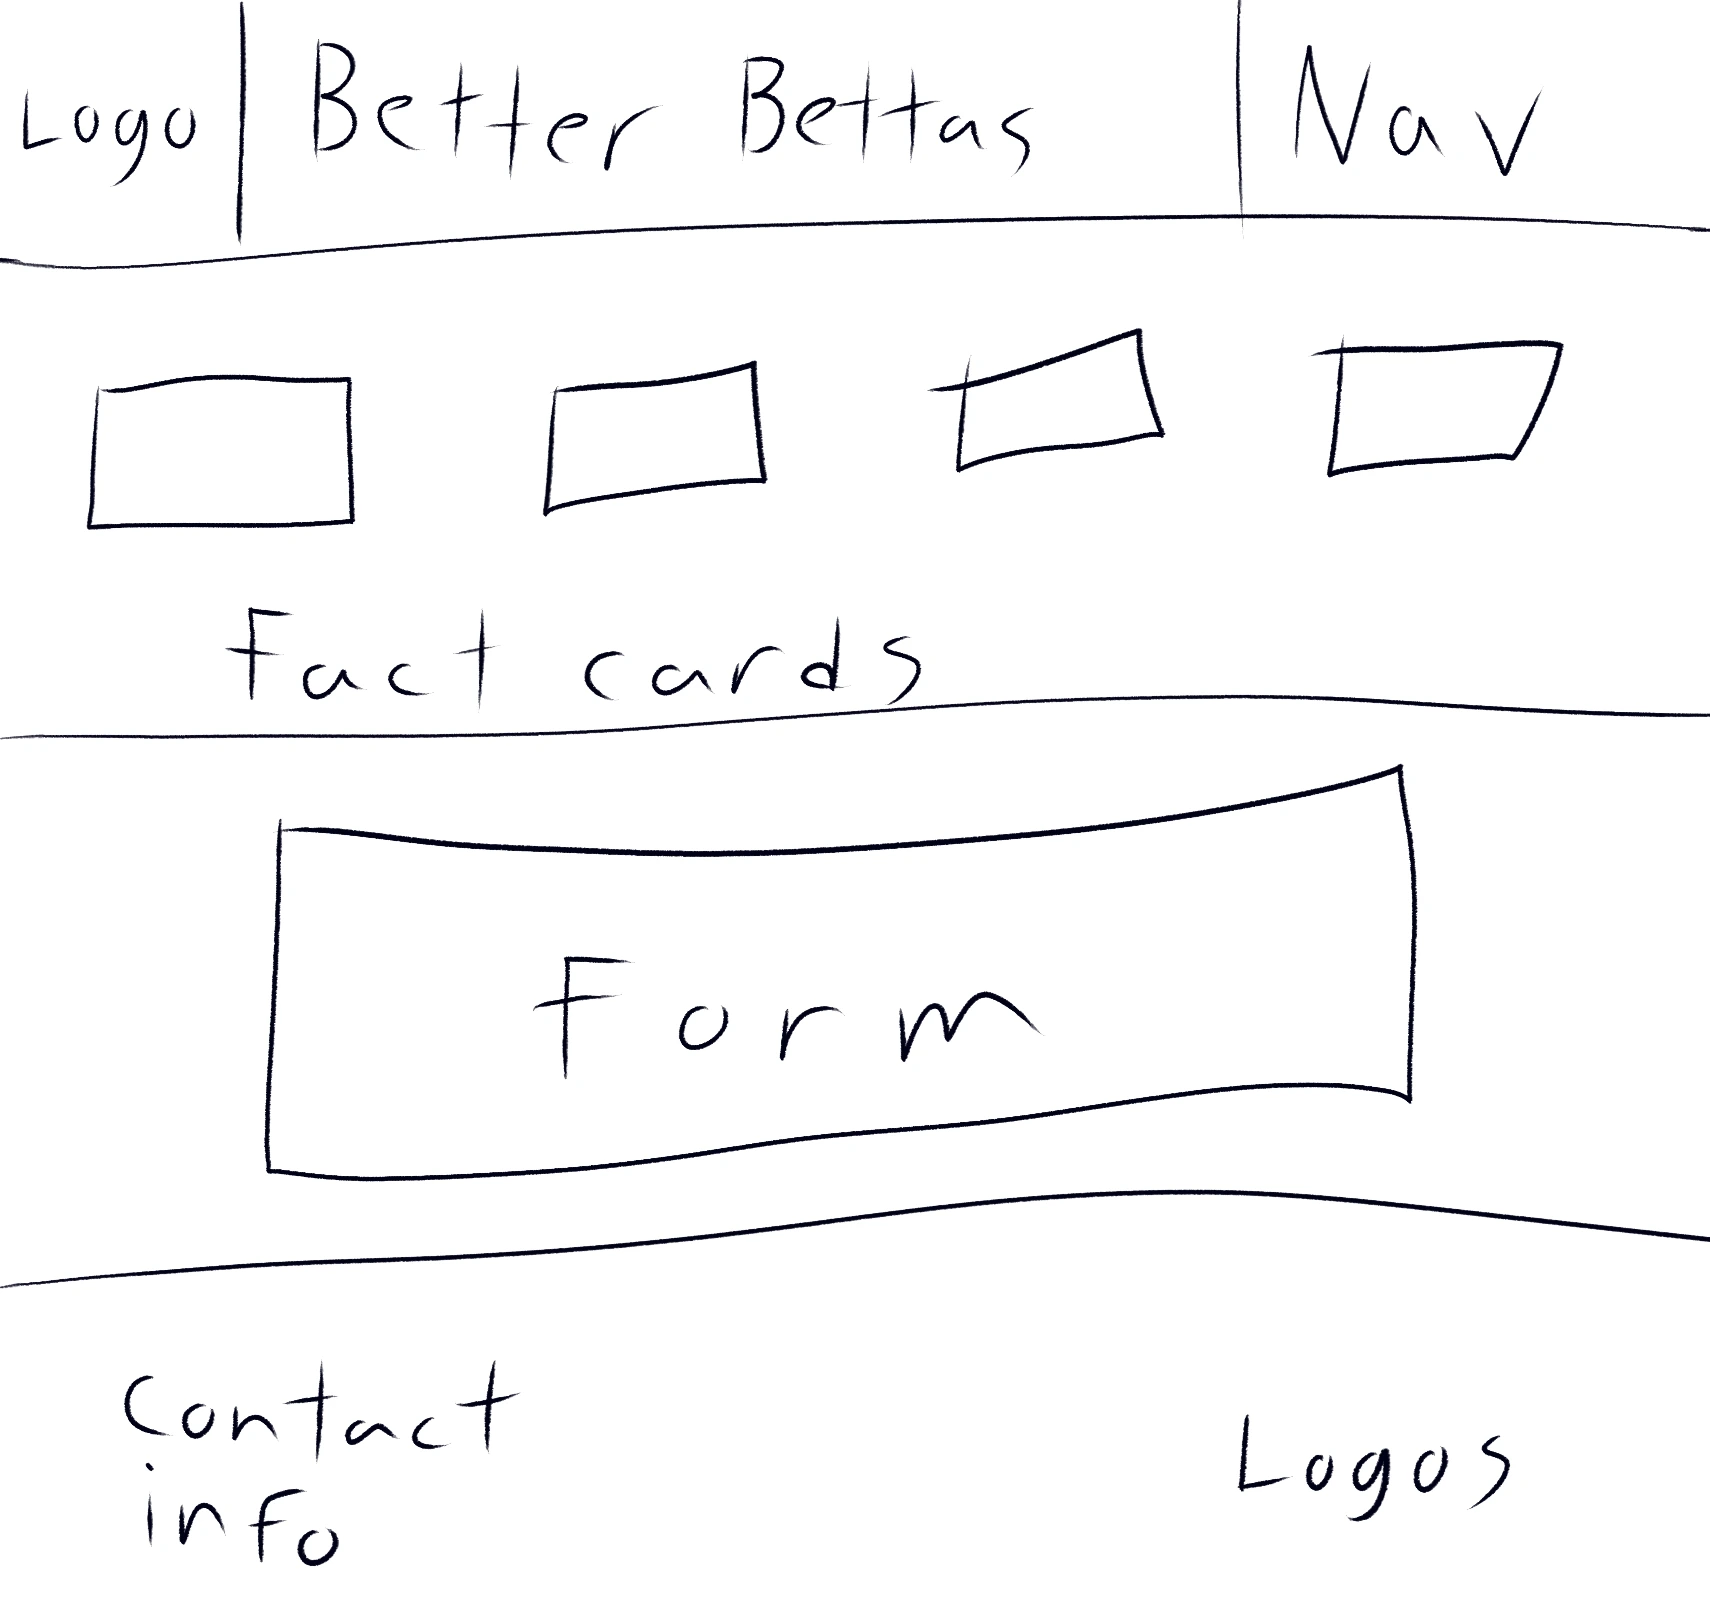 Logo Better Bettas Nav
Fact cards
Form
Contact
info
Logos